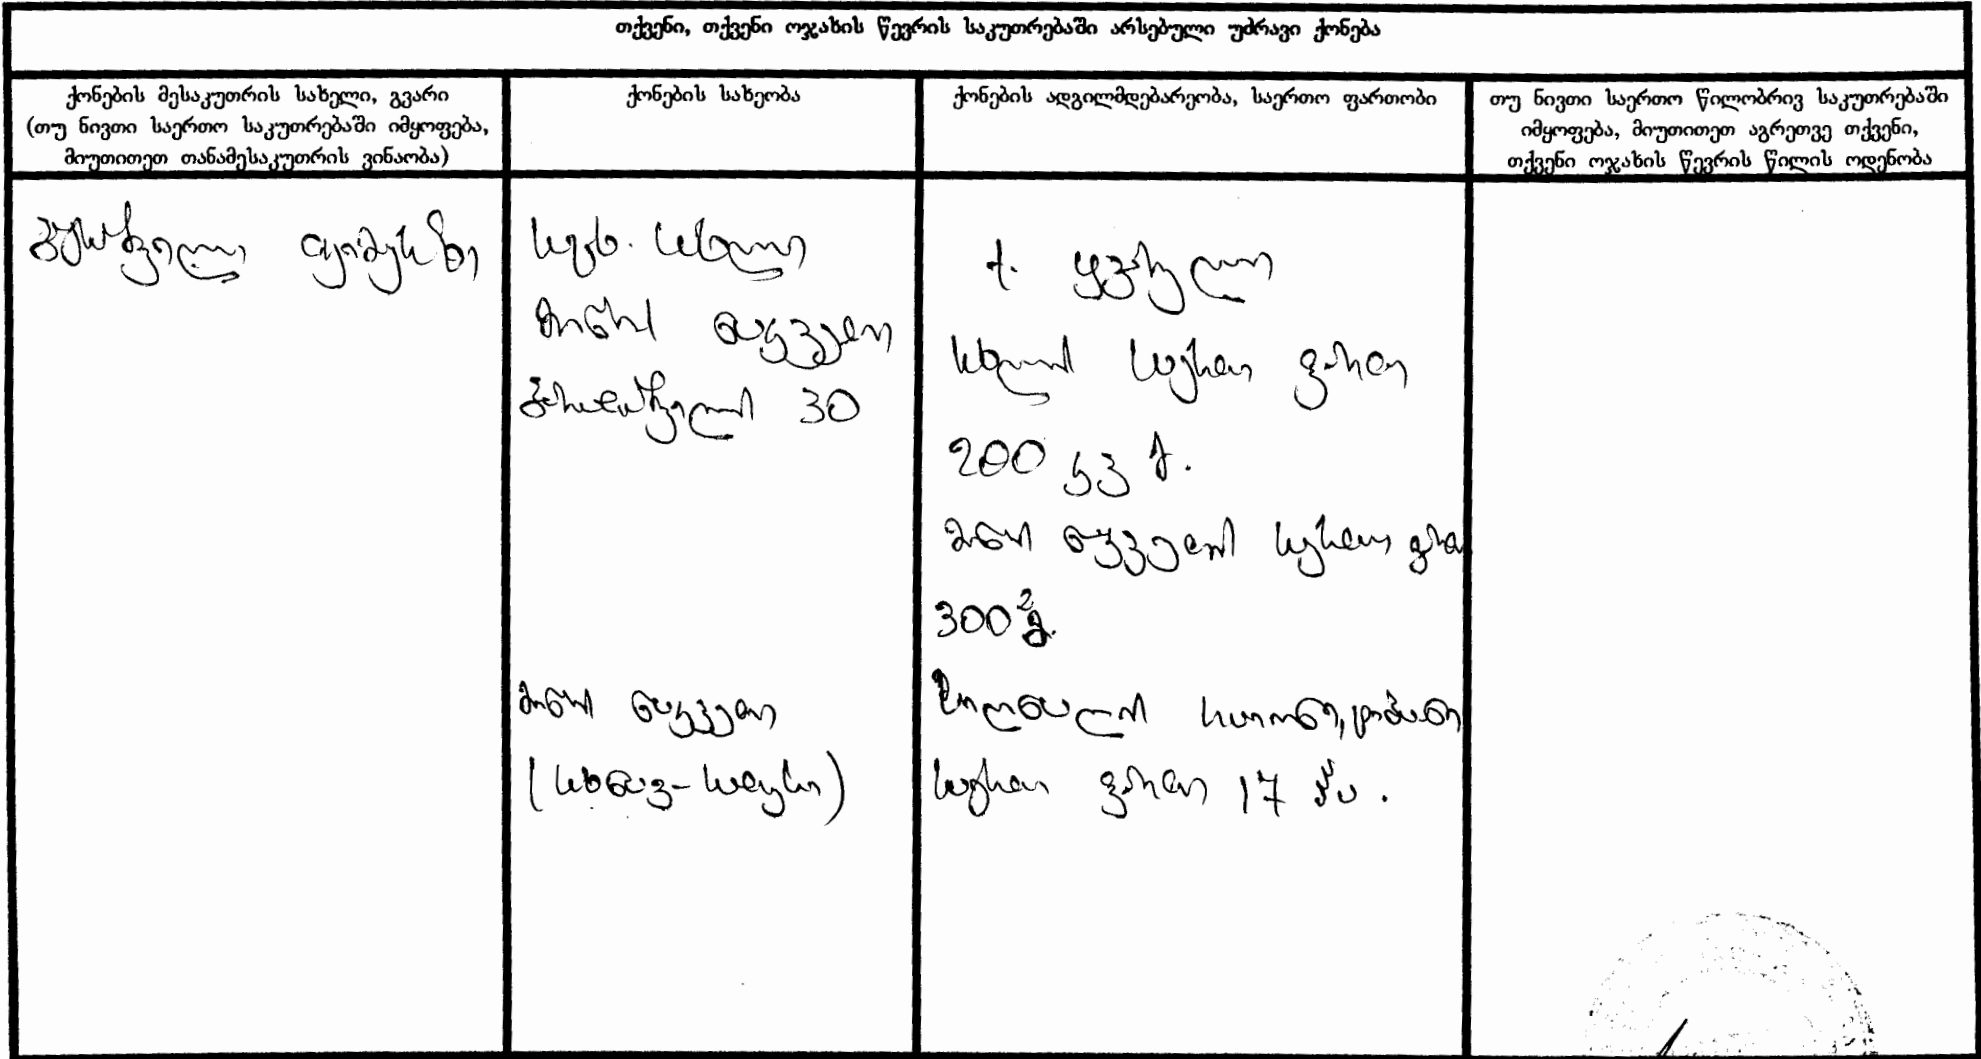 თქვენი, თქვენი ოჯახის წევრის საკუთრებაში არსებული უძრავი ქონება
ქონების მესაკუთრის სახელი, გვარი
(თუ ნივთი საერთო საკუთრებაში იმყოფება,
მიუთითეთ თანამესაკუთრის ვინაობა)
ქონების სახეობა
ქონების ადგილმდებარეობა, საერთო ფართობი
თუ ნივთი საერთო წილობრივ საკუთრებაში
იმყოფება, მიუთითეთ აგრეთვე თქვენი,
თქვენი ოჯახის წევრის წილის ოდენობა
საცხ. სახლი
მიწის ნაკვეთი
30
ქ. ყვარელი
სახლის საერთო ფართი
200 კვ მ.
მიწის ნაკვეთის საერთო ფართი
300 მ².
მიწის ნაკვეთი
(სახნავ-სათესი)
საერთო ფართი 17 ჰა.